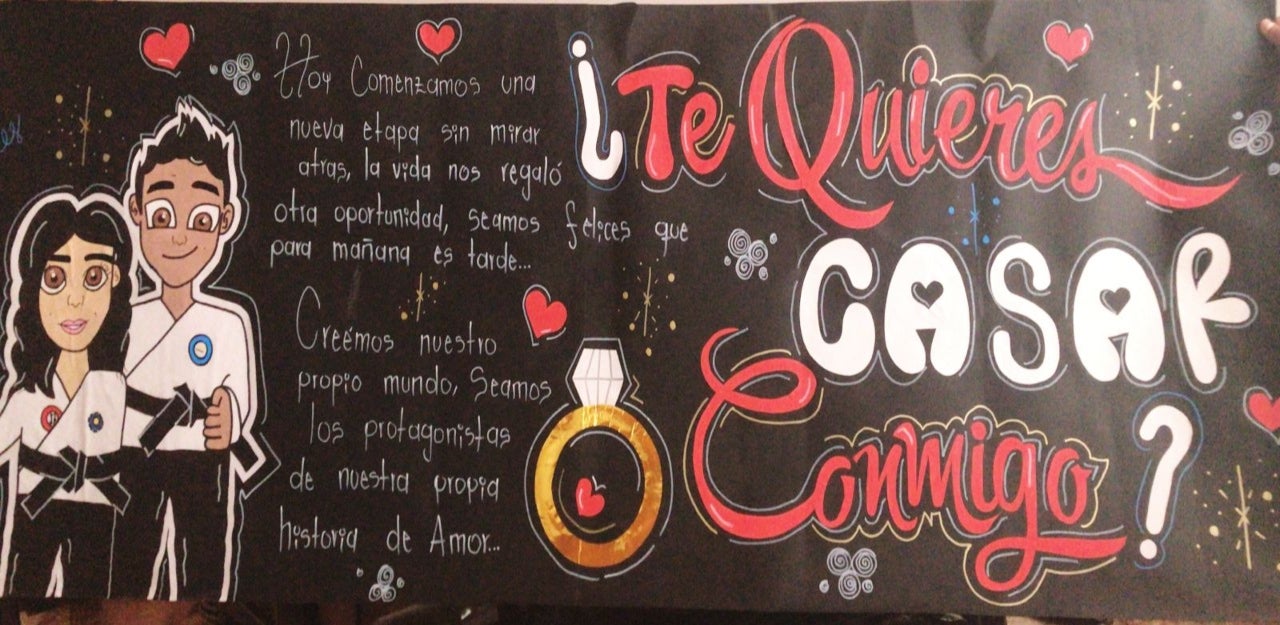 Hoy Comenzamos una
nueva etapa sin mirar
atras, la vida nos regaló
otra oportunidad, seamos felices que
para mañana es tarde...
Creémos nuestro
propio mundo, Seamos
los protagonistas
de nuestra propia
historia de Amor...
¿Te Quieres
CASAR
Conmigo?